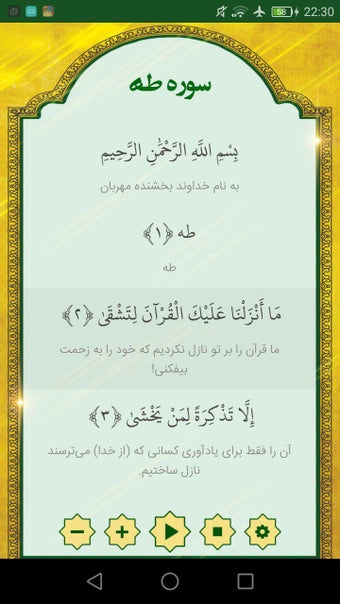 58 22:30
سوره طه
بِسْمِ اللَّهِ الرَّحْمَٰنِ الرَّحِيمِ
به نام خداوند بخشنده مهربان
طه ﴿۱﴾
طه
مَا أَنْزَلْنَا عَلَيْكَ الْقُرْآنَ لِتَشْقَىٰ ﴿۲﴾
ما قرآن را بر تو نازل نکردیم که خود را به زحمت
بیفکنی!
إِلَّا تَذْكِرَةً لِمَنْ يَخْشَىٰ ﴿۳﴾
آن را فقط برای یادآوری کسانی که (از خدا) می‌ترسند
نازل ساختیم.